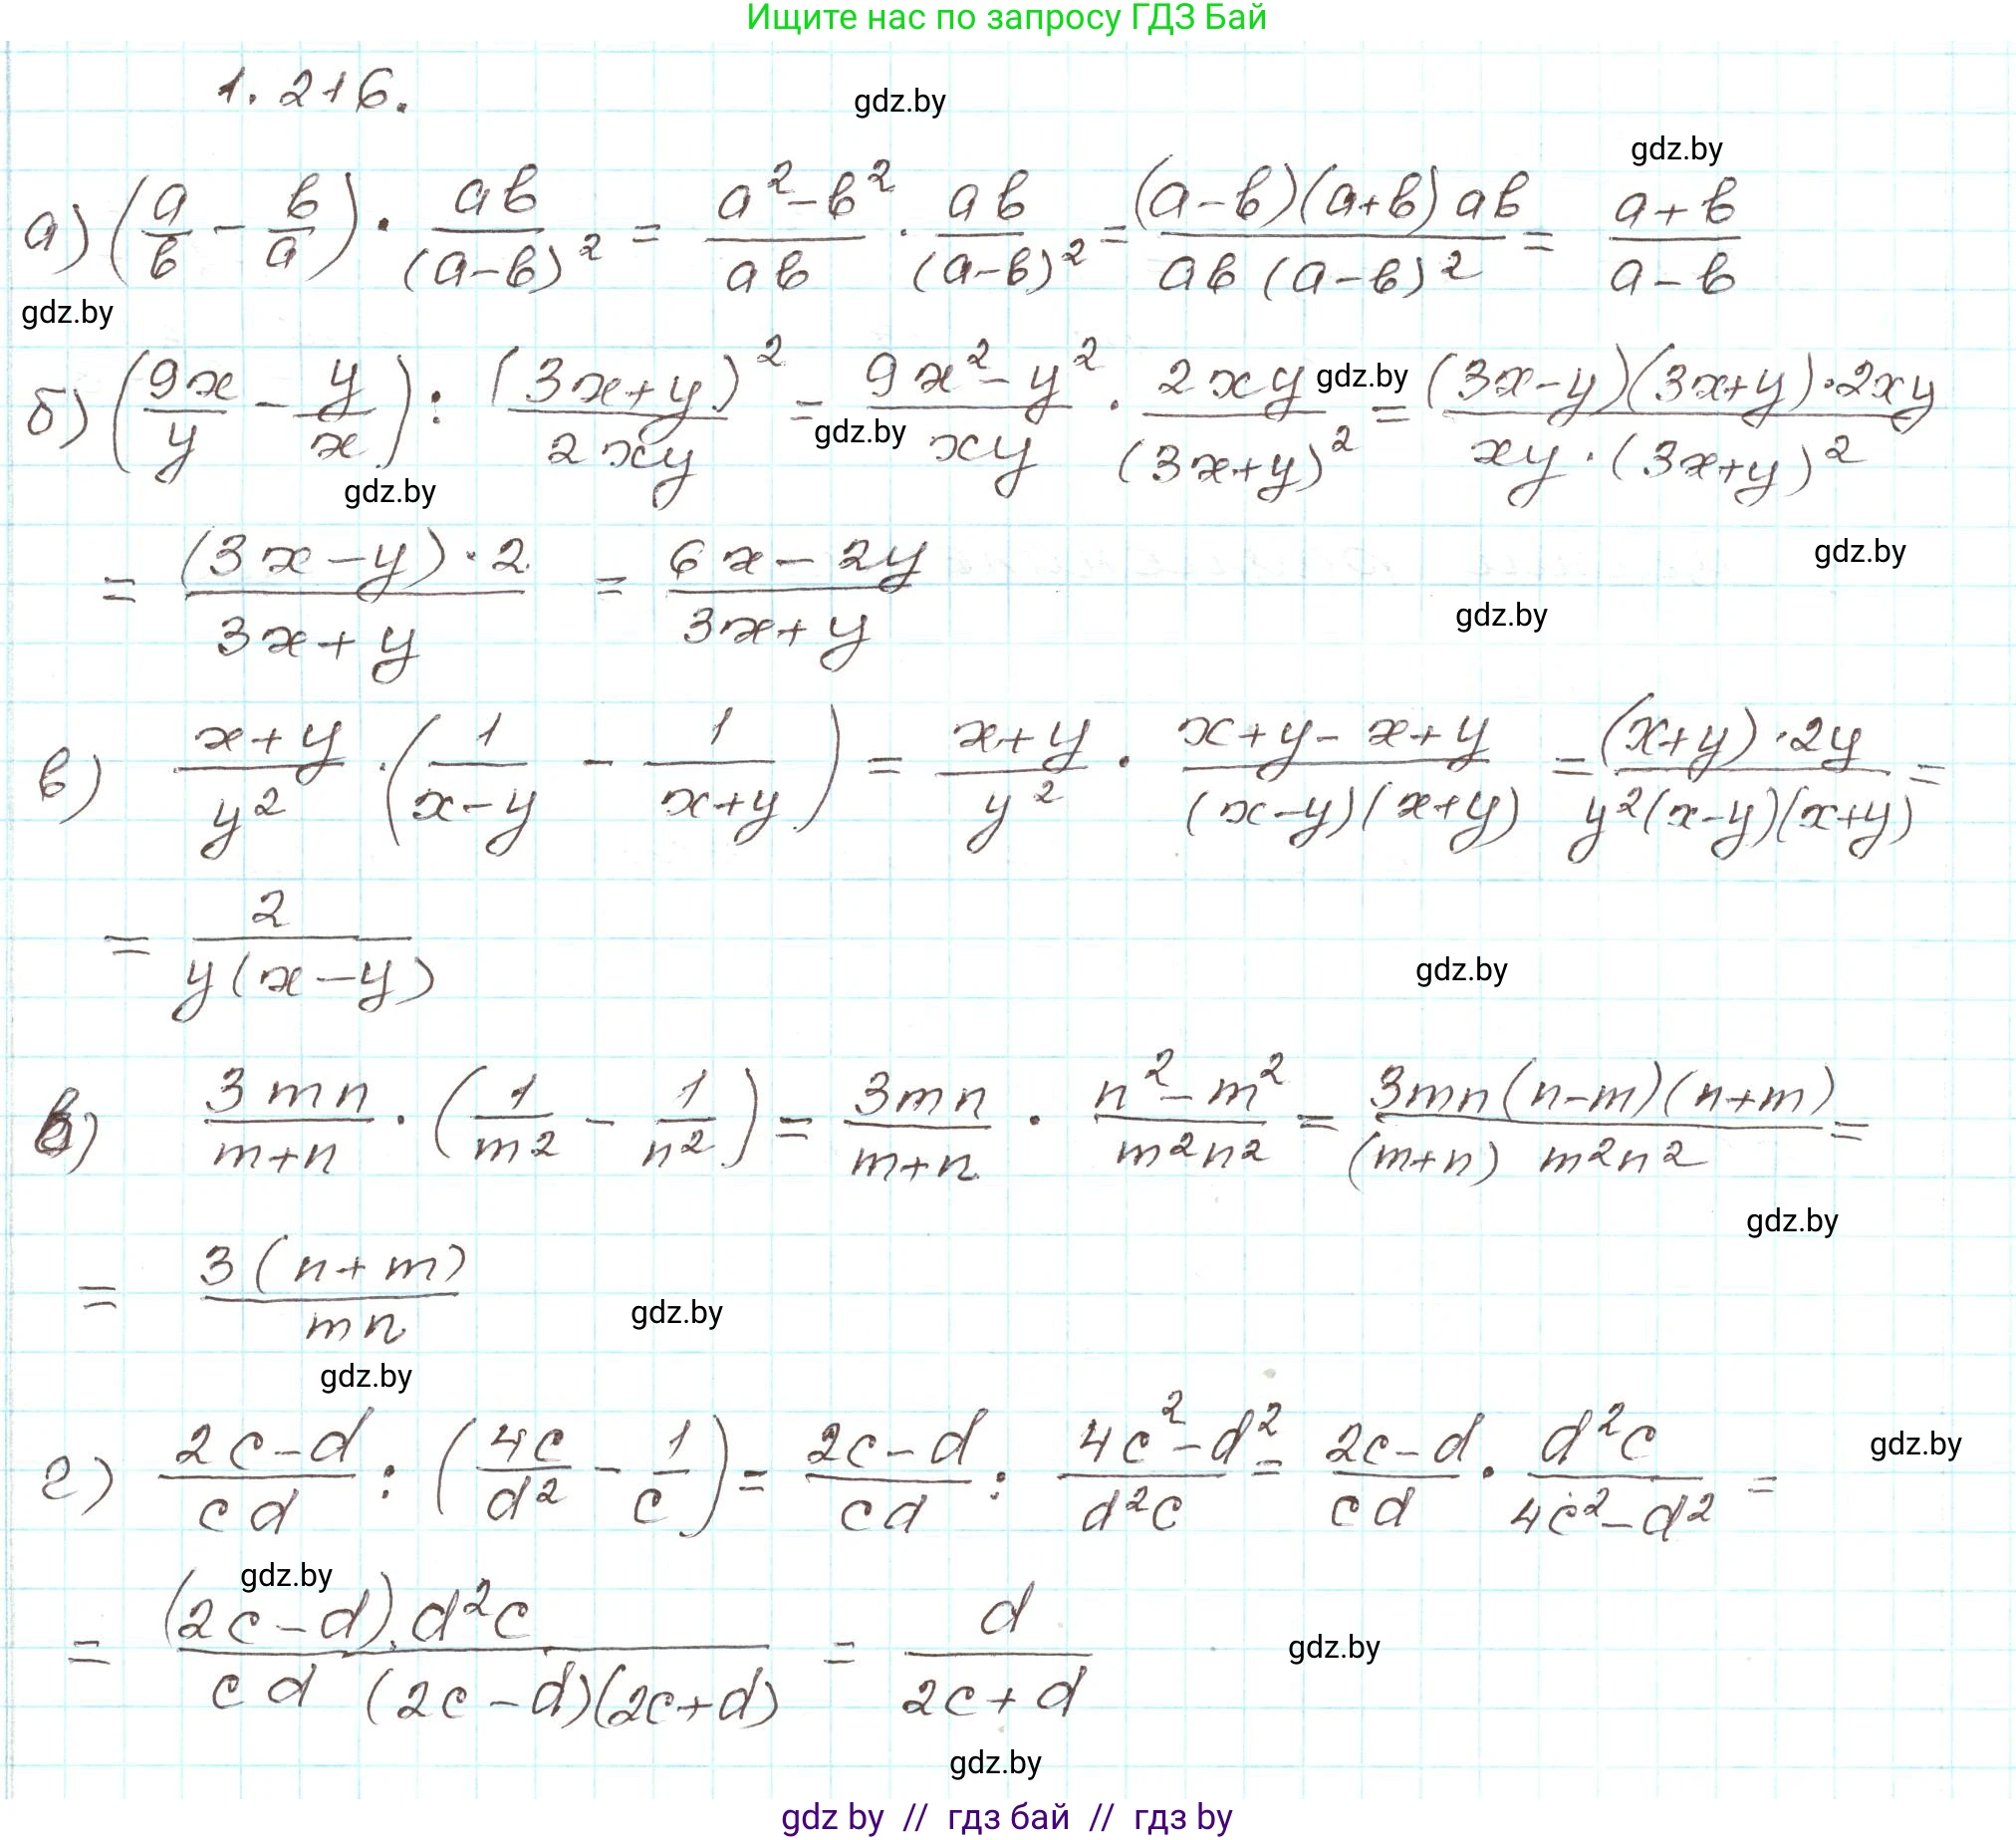 Ищите нас по запросу ГДЗ Бай
1.216.
gdz.by
gdz.by
а) (a/b - b/a) · ab/(a-b)² = (a²-b²)/ab · ab/(a-b)² = (a-b)(a+b)ab/ab(a-b)² = (a+b)/(a-b)
gdz.by
б) (9x/y - y/x) : (3x+y)²/2xy = (9x²-y²)/xy · 2xy/(3x+y)² = (3x-y)(3x+y)·2xy/xy·(3x+y)²
gdz.by
gdz.by
gdz.by
= (3x-y)·2/(3x+y) = (6x-2y)/(3x+y)
gdz.by
gdz.by
в) (x+y)/y² · (1/(x-y) - 1/(x+y)) = (x+y)/y² · (x+y-x+y)/(x-y)(x+y) = (x+y)·2y/y²(x-y)(x+y) =
= 2/y(x-y)
gdz.by
в) 3mn/(m+n) · (1/m² - 1/n²) = 3mn/(m+n) · (n²-m²)/m²n² = 3mn(n-m)(n+m)/(m+n) m²n² =
gdz.by
= 3(n+m)/mn
gdz.by
gdz.by
г) (2c-d)/cd : (4c/d² - 1/c) = (2c-d)/cd : (4c²-d²)/d²c = (2c-d)/cd · d²c/(4c²-d²) =
gdz.by
gdz.by
= (2c-d)·d²c/cd(2c-d)(2c+d) = d/(2c+d)
gdz.by
gdz.by
gdz by // гдз бай // гдз by